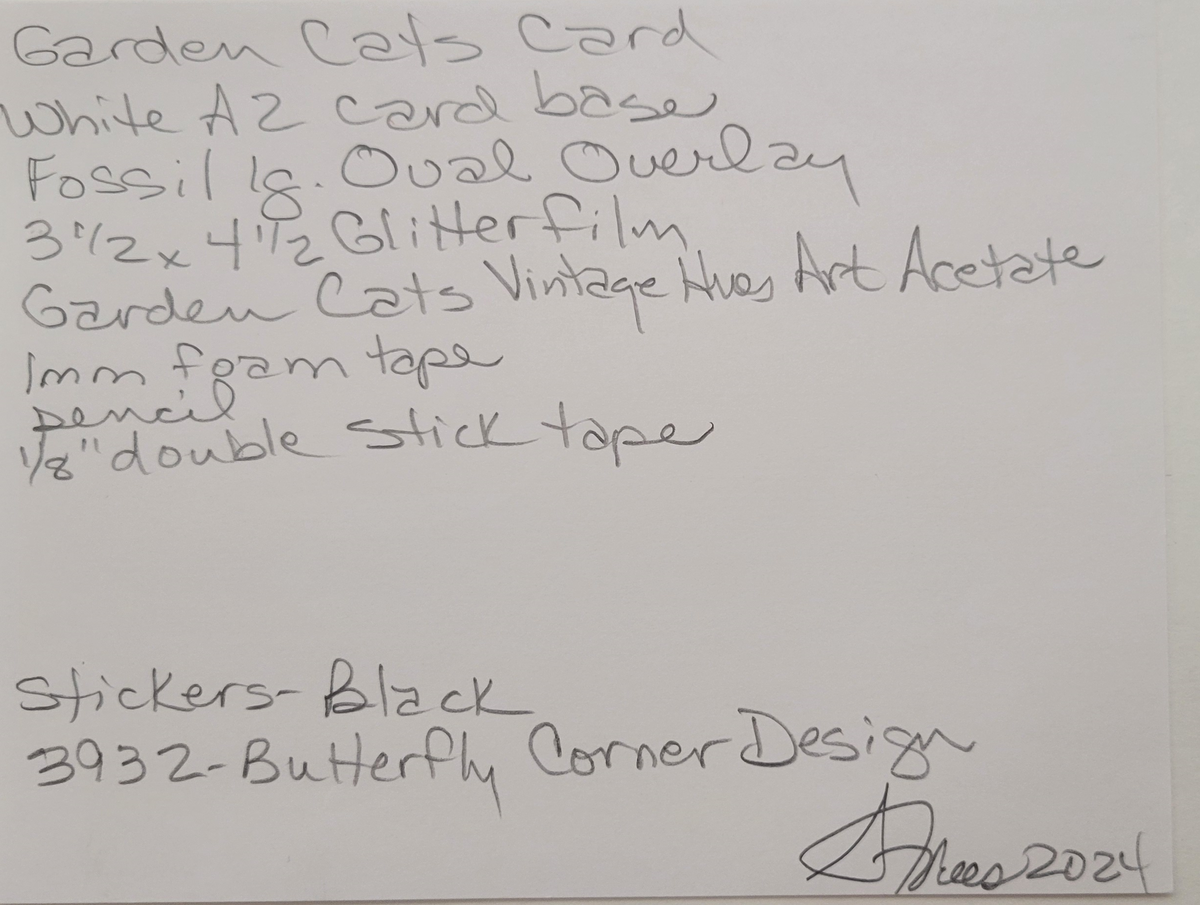 Garden Cats Card
White A2 card base
Fossil lg. Oval Overlay
3 1/2 x 4 1/2 Glitter film
Garden Cats Vintage Hues Art Acetate
1mm foam tape
pencil
1/8" double stick tape
Stickers- Black
3932- Butterfly Corner Design
2024